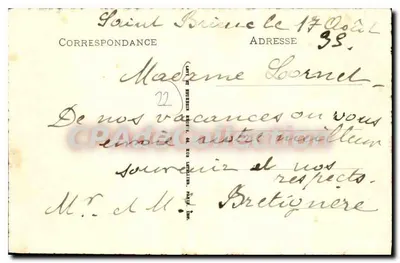 Saint Brieuc le 17 Août
CORRESPONDANCE ADRESSE 35.
Madame Lornet
22
De nos vacances on vous
envoie notre meilleur
souvenir et nos
respects.
Mr et M. Bretignère